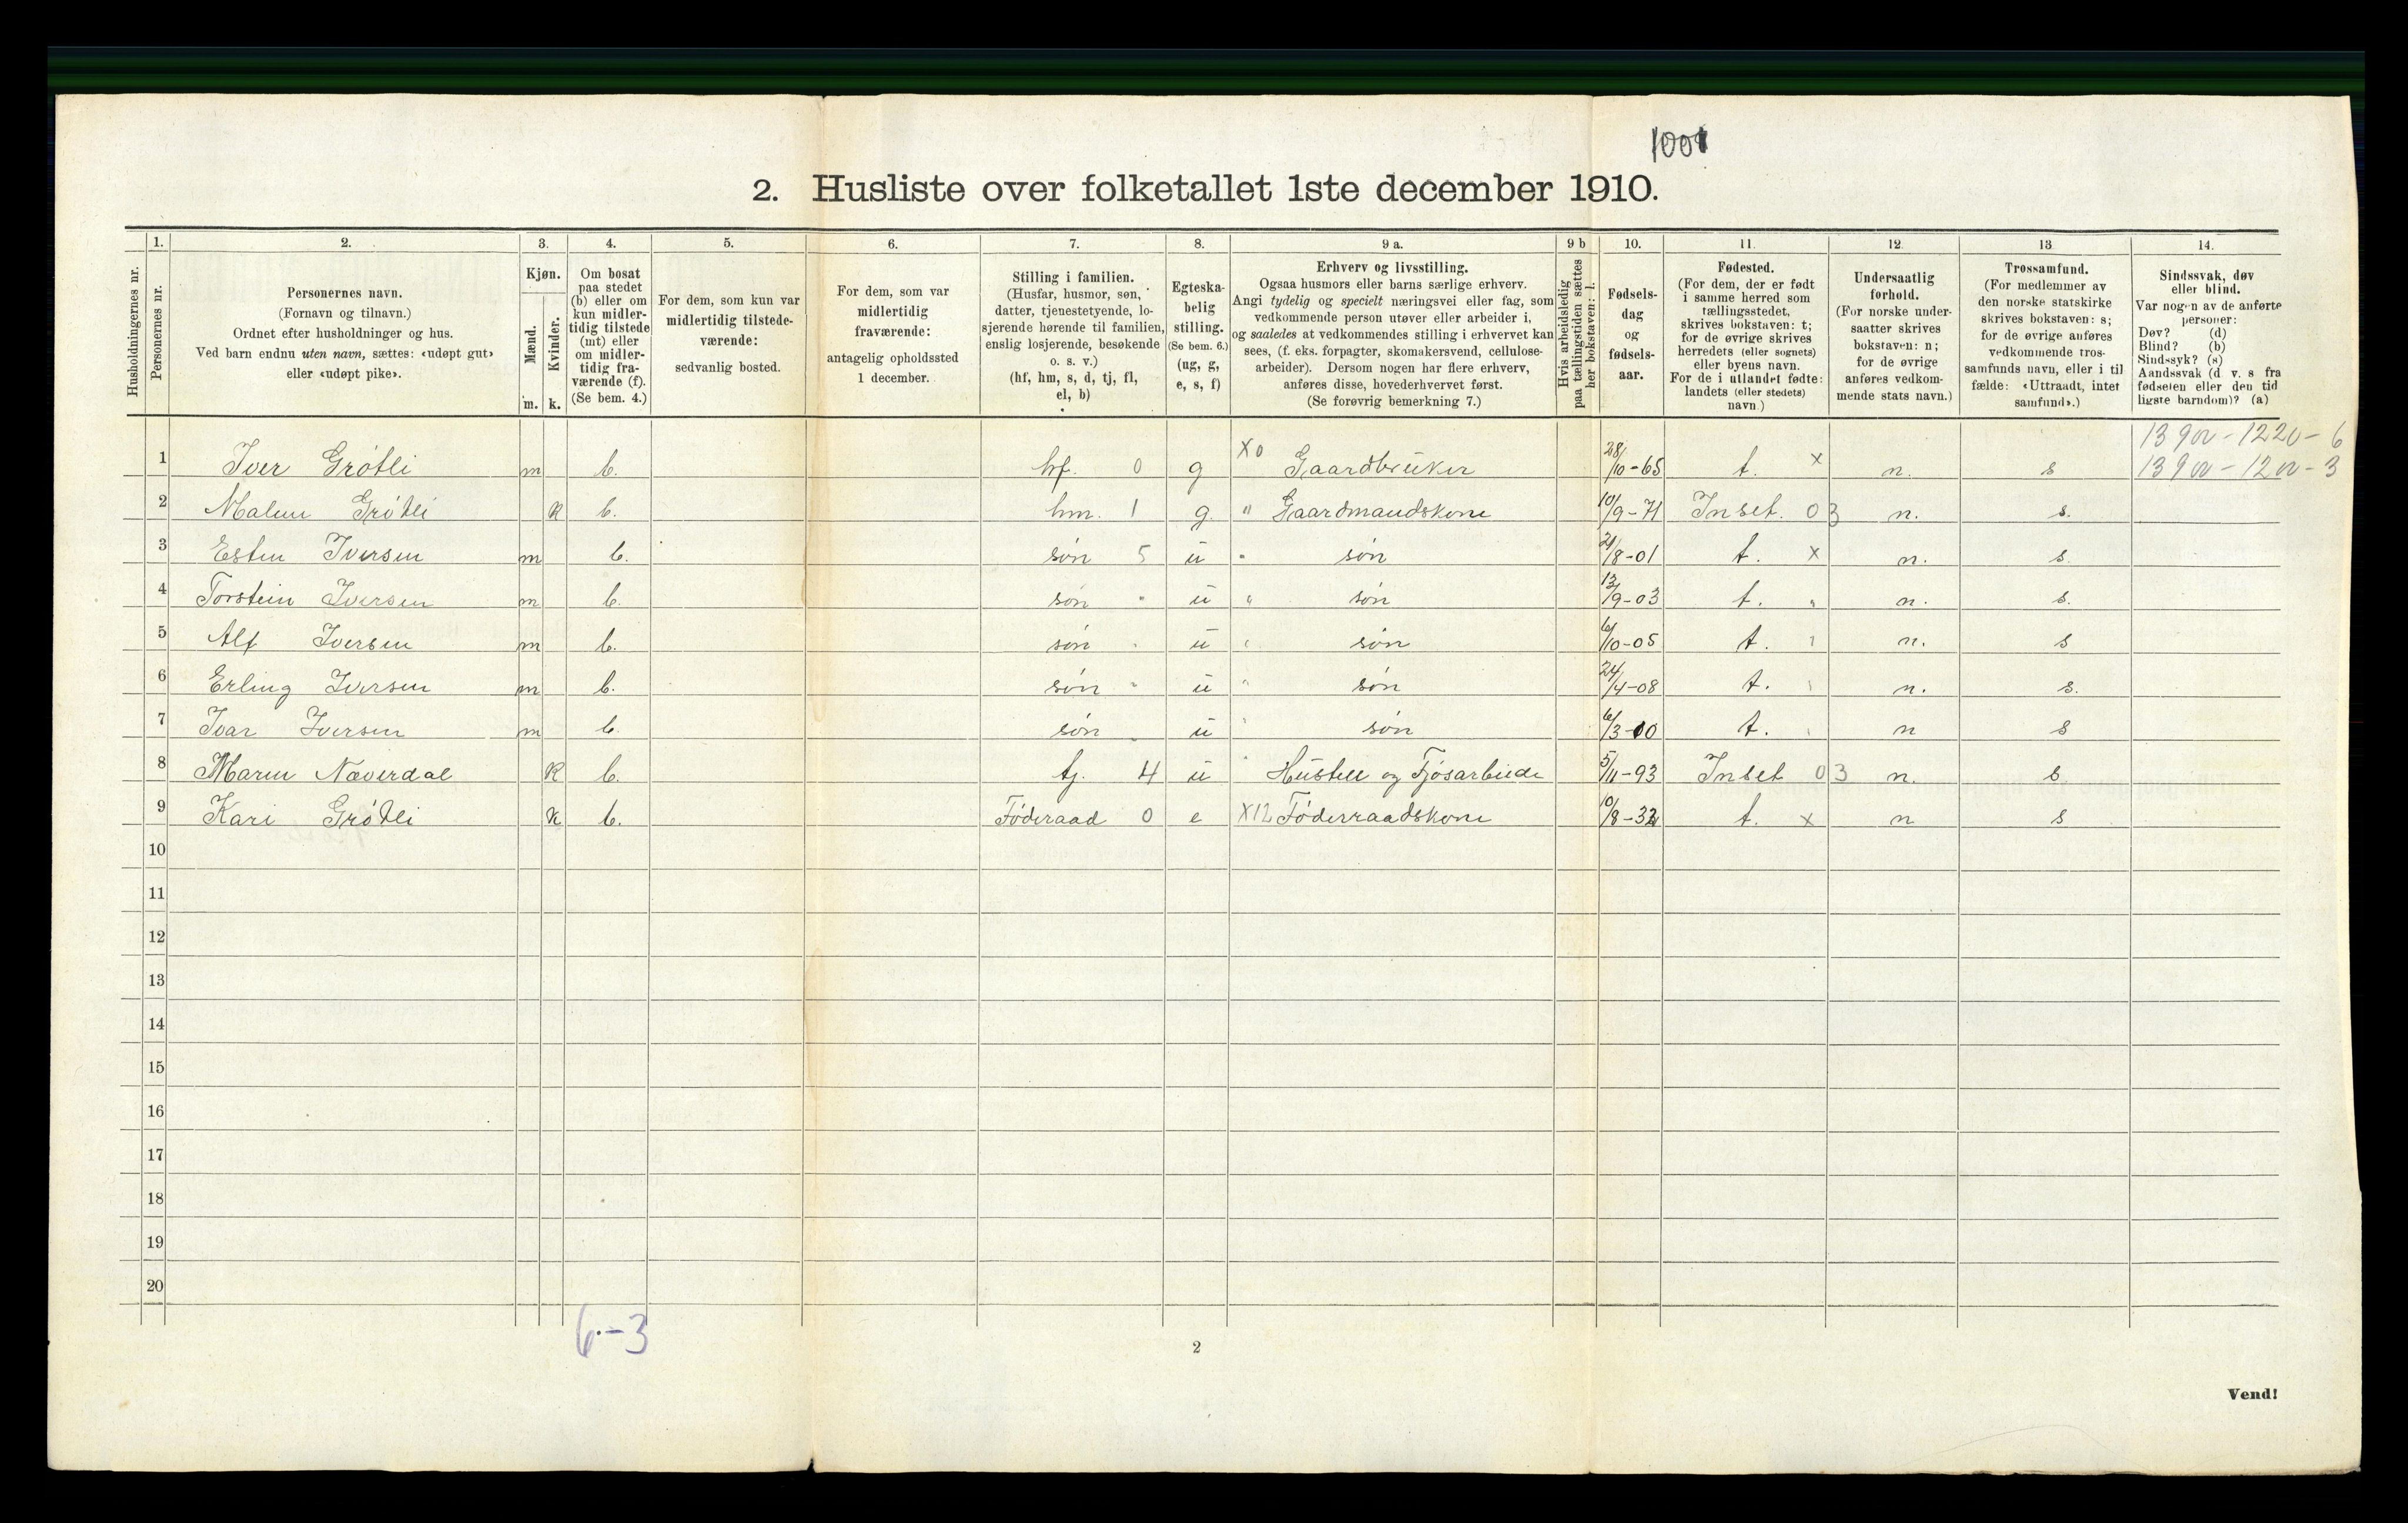 1001
2. Husliste over folketallet 1ste december 1910.
Husholdningernes nr.
1. Personernes nr.
2. Personernes navn.
(Fornavn og tilnavn.)
Ordnet efter husholdninger og hus.
Ved barn endnu uten navn, sættes: «udøpt gut»
eller «udøpt pike».
3. Kjøn.
Mænd. Kvinder.
m. k.
4. Om bosat
paa stedet
(b) eller om
kun midler-
tidig tilstede
(mt) eller
om midler-
tidig fra-
værende (f).
(Se bem. 4.)
5. For dem, som kun var
midlertidig tilstede-
værende:
sedvanlig bosted.
6. For dem, som var
midlertidig
fraværende:
antagelig opholdssted
1 december.
7. Stilling i familien.
(Husfar, husmor, søn,
datter, tjenestetyende, lo-
sjerende hørende til familien,
enslig losjerende, besøkende
o. s. v.)
(hf, hm, s, d, tj, fl,
el, b)
8. Egteska-
belig
stilling.
(Se bem. 6.)
(ug, g,
e, s, f)
9 a. Erhverv og livsstilling.
Ogsaa husmors eller barns særlige erhverv.
Angi tydelig og specielt næringsvei eller fag, som
vedkommende person utøver eller arbeider i,
og saaledes at vedkommendes stilling i erhvervet kan
sees, (f. eks. forpagter, skomakersvend, cellulose-
arbeider). Dersom nogen har flere erhverv,
anføres disse, hovederhvervet først.
(Se forøvrig bemerkning 7.)
9 b Hvis arbeidsledig
paa tællingstiden sættes
her bokstaven: l.
10. Fødsels-
dag
og
fødsels-
aar.
11. Fødested.
(For dem, der er født
i samme herred som
tællingsstedet,
skrives bokstaven: t;
for de øvrige skrives
herredets (eller sognets)
eller byens navn.
For de i utlandet fødte:
landets (eller stedets)
navn.)
12. Undersaatlig
forhold.
(For norske under-
saatter skrives
bokstaven: n;
for de øvrige
anføres vedkom-
mende stats navn.)
13. Trossamfund.
(For medlemmer av
den norske statskirke
skrives bokstaven: s;
for de øvrige anføres
vedkommende tros-
samfunds navn, eller i til
fælde: «Uttraadt, intet
samfund».)
14. Sindssvak, døv
eller blind.
Var nogen av de anførte
personer:
Døv? (d)
Blind? (b)
Sindssyk? (s)
Aandssvak (d. v. s. fra
fødselen eller den tid
ligste barndom)? (a)
1 Iver Grøtli m b. hf. 0 g X0 Gaardbruker 28/10-65 t. x n. s
2 Malun Grøtli k b. hm. 1 g. " Gaardmandskone 10/9-71 Inset. 03 n. s.
3 Esten Iversen m b. søn 5 u " søn 21/8-01 t. x n. s.
4 Torstein Iversen m b. søn " u " søn 13/9-03 t. " n. s.
5 Alf Iversen m b. søn " u " søn 6/10-05 t. " n. s
6 Erling Iversen m b. søn " u " søn 24/4-08 t. " n. s.
7 Ivar Iversen m b. søn " u " søn 6/3-00 t. " n s
8 Maren Næverdal k b. tj. 4 u " Hustell og Fjøsarbeide 5/11-93 Inset 03 n. s
9 Kari Grøtli k b. Føderaad 0 e X12 Føderraadskone 10/8-32 t. x n s
10
11
12
13
14
15
16
17
18
19
20
6.-3
2
Vend!